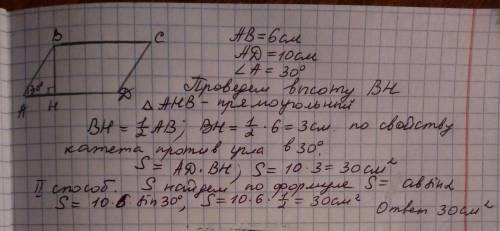 B
C
AB=6см
AD=10см
∠A=30°
30°
A
H
D
Проведем высоту BH
△AHB - прямоугольный
BH = 1/2 AB; BH = 1/2 · 6 = 3см. по свойству
катета против угла в 30°.
S = AD · BH; S = 10 · 3 = 30 см²
II способ. S найдем по формуле S = absinα
S = 10 · 6 sin 30°; S = 10 · 6 · 1/2 = 30см²
Ответ 30см²